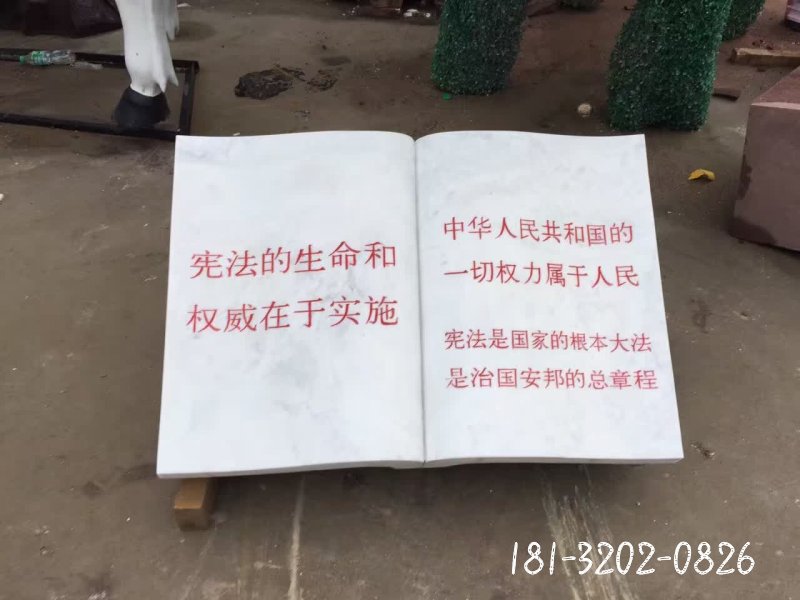 宪法的生命和
权威在于实施
中华人民共和国的
一切权力属于人民
宪法是国家的根本大法
是治国安邦的总章程
181-3202-0826